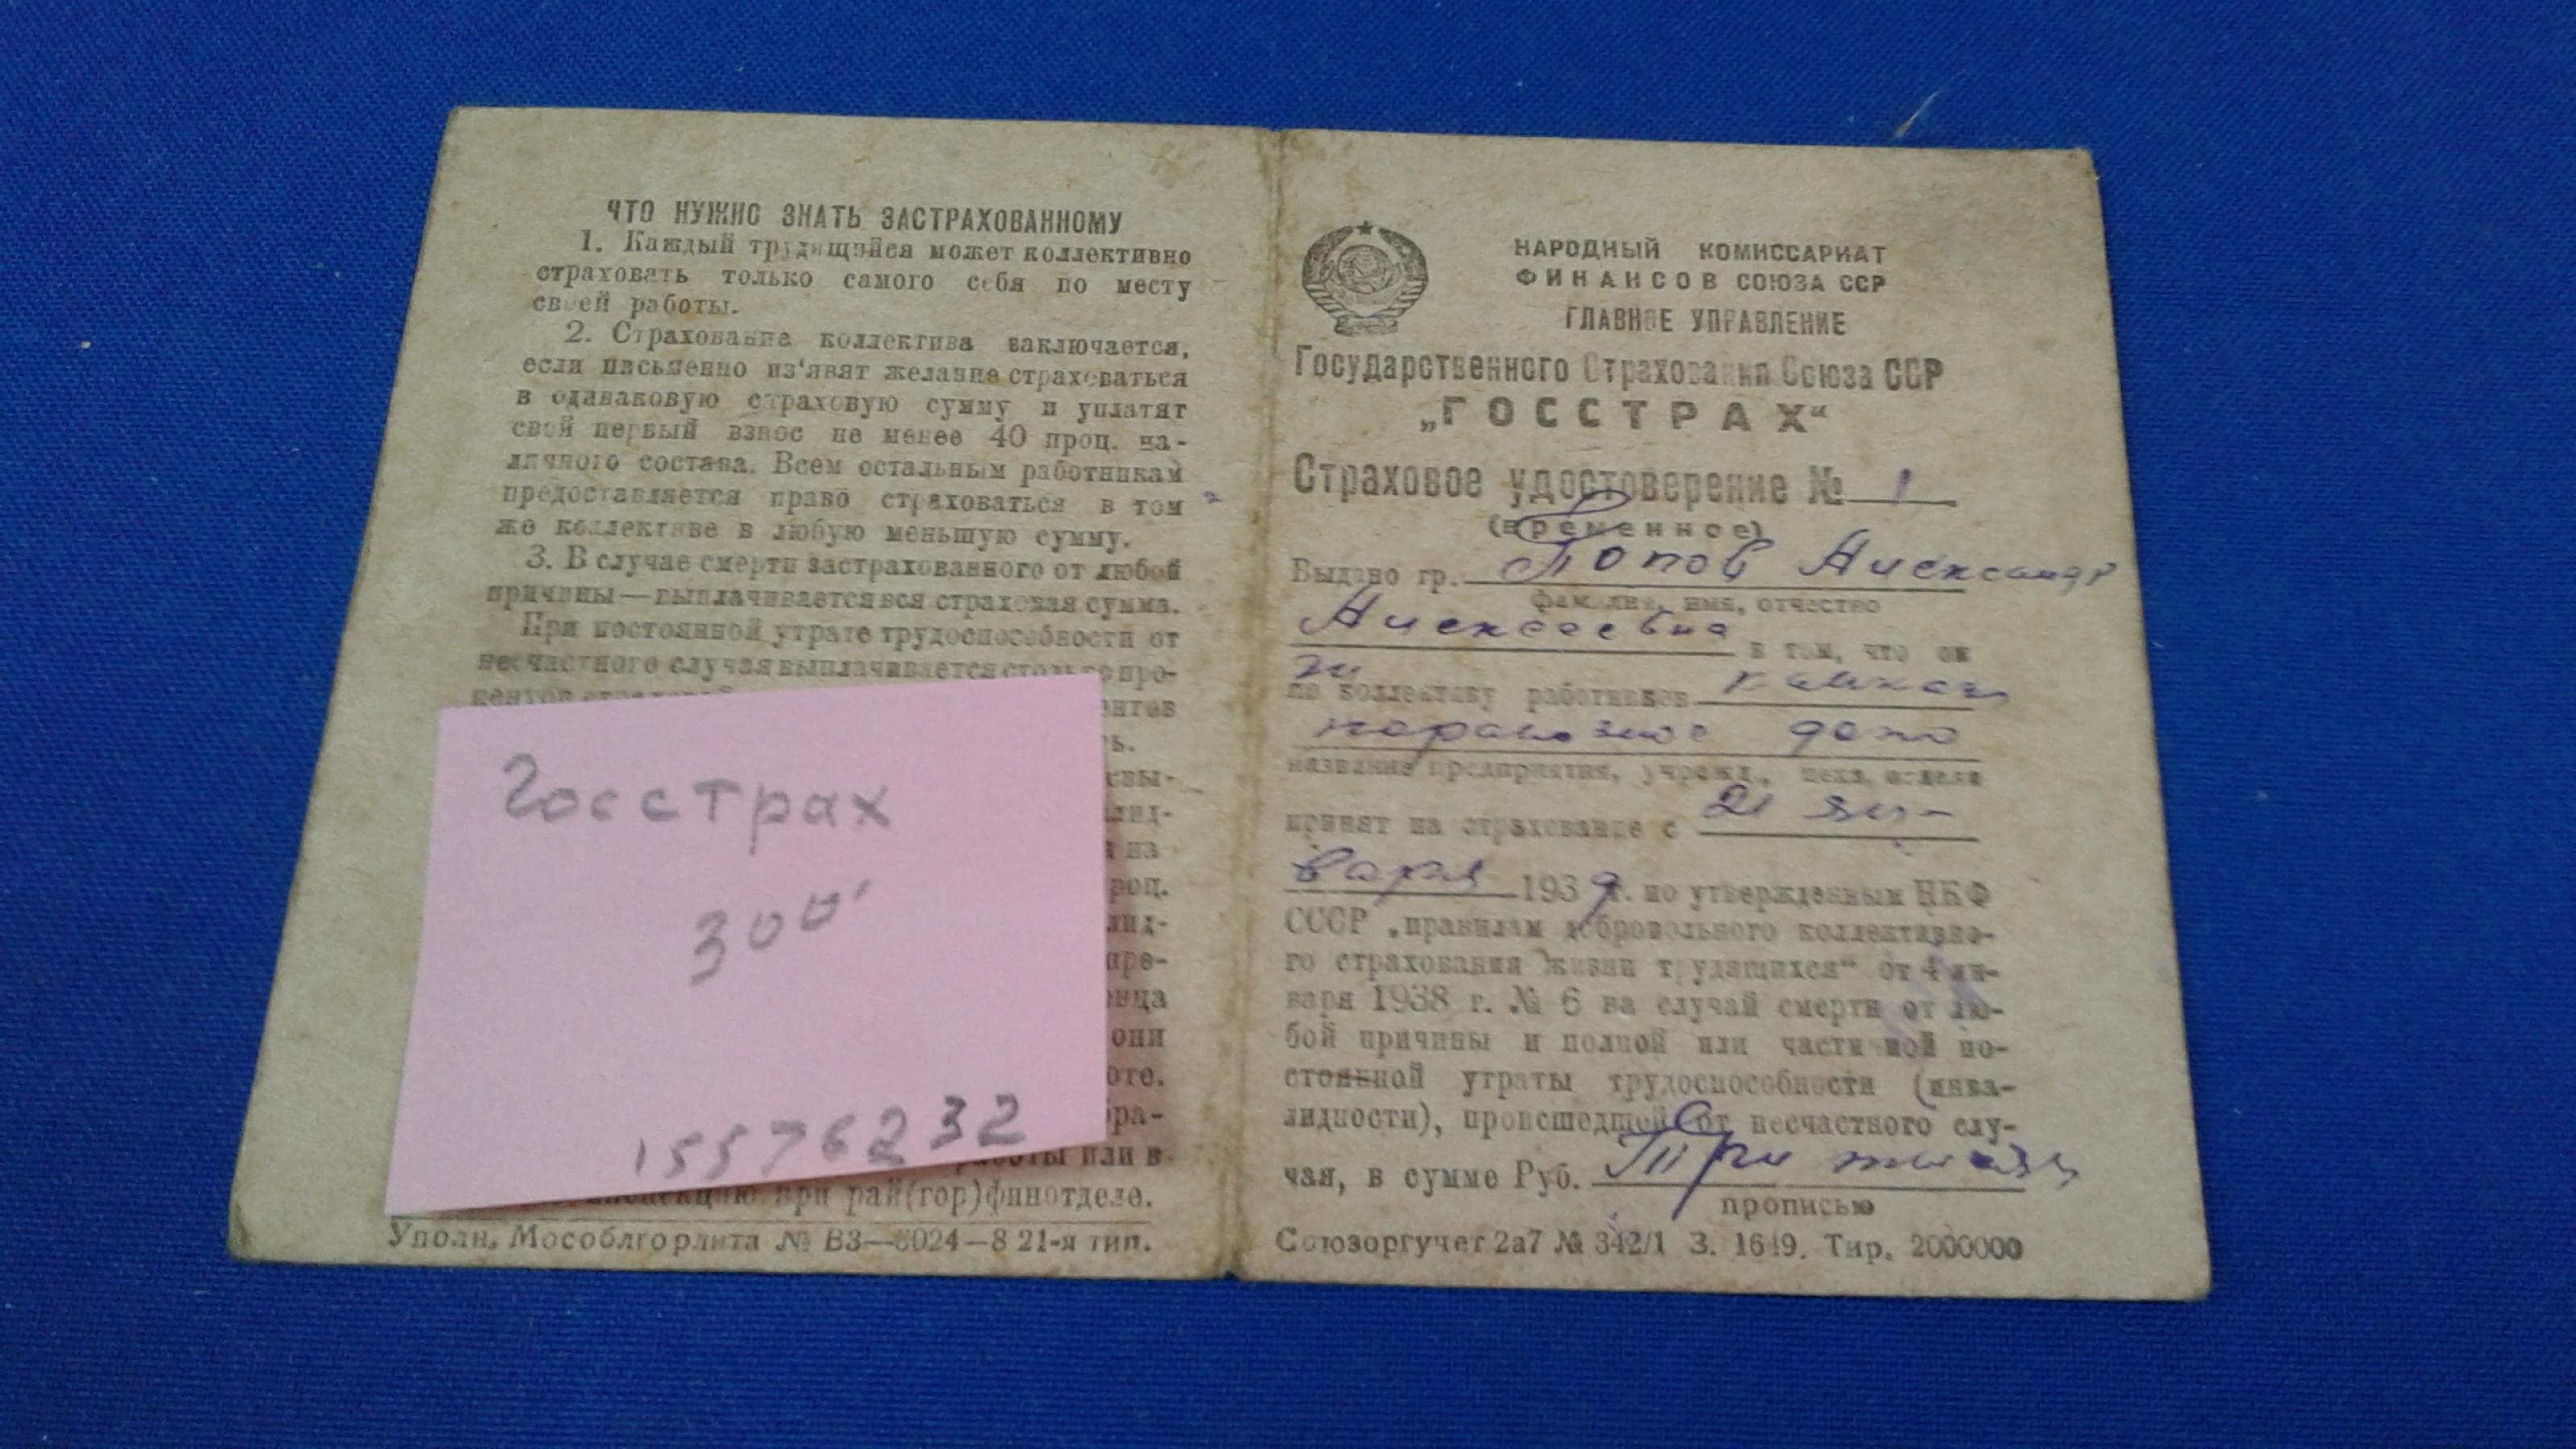 ЧТО НУЖНО ЗНАТЬ ЗАСТРАХОВАННОМУ
1. Каждый трудящийся может коллективно
страховать только самого себя по месту
своей работы.
2. Страхование коллектива заключается,
если письменно из'явят желание страховаться
в одинаковую страховую сумму и уплатят
свой первый взнос не менее 40 проц. на-
личного состава. Всем остальным работникам
предоставляется право страховаться в том
же коллективе в любую меньшую сумму.
3. В случае смерти застрахованного от любой
причины — выплачивается вся страховая сумма.
При постоянной утрате трудоспособности от
несчастного случая выплачивается столько про-
центов
ентов
ь.
евы-
лид-
из
роц.
лид-
пре-
она
они
оте.
бра-
работы или в
инспекцию при рай(гор)финотделе.
Уполн. Мособлгорлита № В3—8024—8 21-я тип.
Госстрах
300'
155762 32
НАРОДНЫЙ КОМИССАРИАТ
ФИНАНСОВ СОЮЗА ССР
ГЛАВНОЕ УПРАВЛЕНИЕ
Государственного Страхования Союза ССР
„ГОССТРАХ“
Страховое удостоверение № 1
(временное)
Выдано гр. Попов Александр
фамилия, имя, отчество
Алексеевна в том, что он
по коллективу работников
паровозное депо
название предприятия, учрежд., цеха, отдела
принят на страхование с 21 ян-
варя 1939 г. по утвержденным НКФ
СССР „правилам добровольного коллективно-
го страхования жизни трудящихся“ от 4 ян-
варя 1938 г. № 6 на случай смерти от лю-
бой причины и полной или частичной по-
стоянной утраты трудоспособности (инва-
лидности), происшедшей от несчастного слу-
чая, в сумме Руб. Три тысячи
прописью
Союзоргучет 2а7 № 342/1 З. 1649. Тир. 2000000